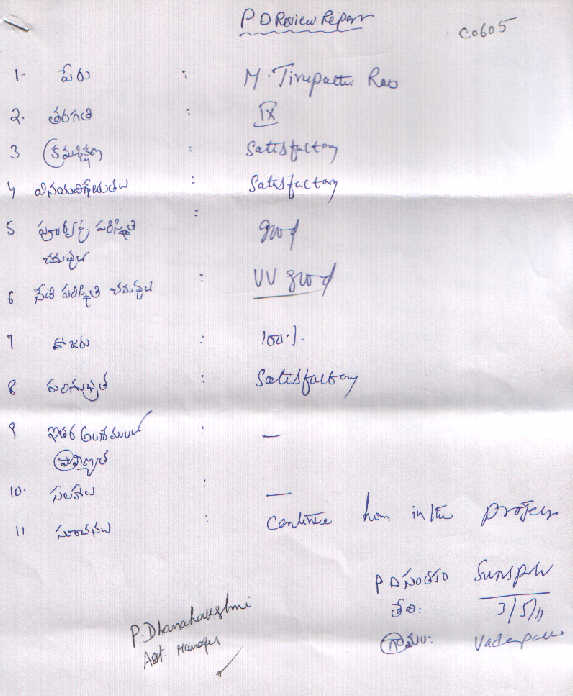 P D Review Report
C0605
1. పేరు : M. Tirupattu Rao
2. తరగతి : IX
3 క్రమశిక్షణ : Satisfactory
4 వినయవిధేయతలు : Satisfactory
5 పూర్వపు పరిస్థితి : good
చదువులు
6 నేటి పరిస్థితి చదువులు : VV good
7 హాజరు : 100%
8 పరిశుభ్రత : Satisfactory
9 ఇతర అంశములలో : —
ప్రావీణ్యత
10. సలహాలు : —
11 సూచనలు : Continue him in the project
P D సంతకం
తేది: 3/5/11
గ్రామం:
P. Dhanalakshmi
Asst Manager